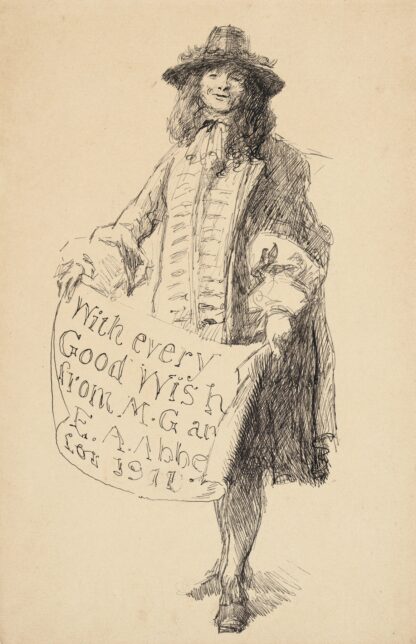 With every
Good Wish
from M. G an
E. A. Abbe
for 1911